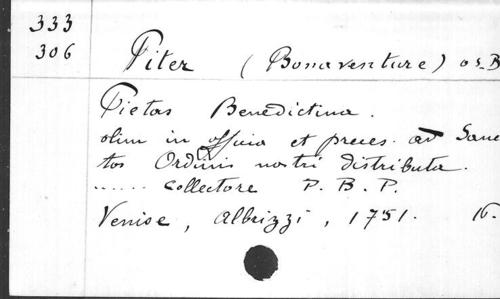 333
306
Piter (Bonaventure) os.B
Pietas Benedictina.
olim in officia et preces ad Sanc
tos Ordinis nostri distributa.
...... collectore P. B. P.
Venise, Albrizzi, 1751. 16.